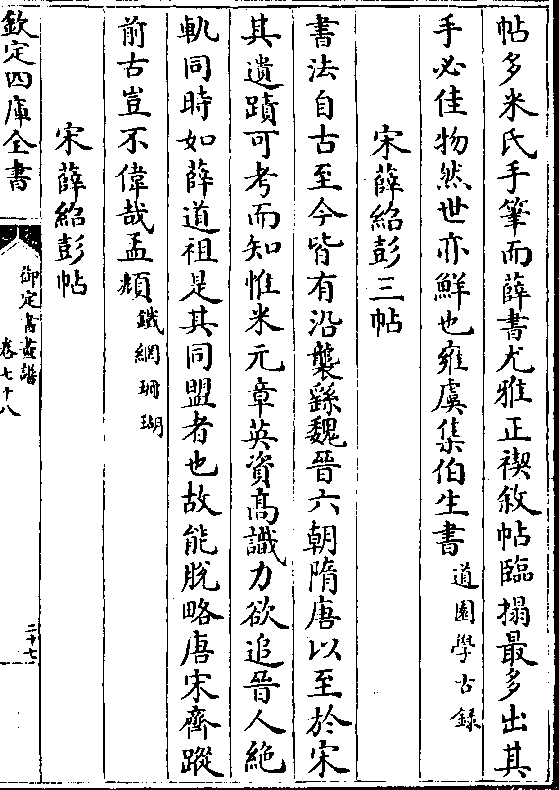 帖多米氏手筆而薛書尤雅正禊敘帖臨搨最多出其
手必佳物然世亦鮮也雍虞集伯生書道園學古録
宋薛紹彭三帖
書法自古至今皆有沿襲繇魏晉六朝隋唐以至於宋
其遺蹟可考而知惟米元章英資髙識力欲追晉人絶
軌同時如薛道祖是其同盟者也故能脱略唐宋齊蹤
前古豈不偉哉孟頫鐵網珊瑚
宋薛紹彭帖
欽定四庫全書
御定書畫譜
卷七十八
二十七